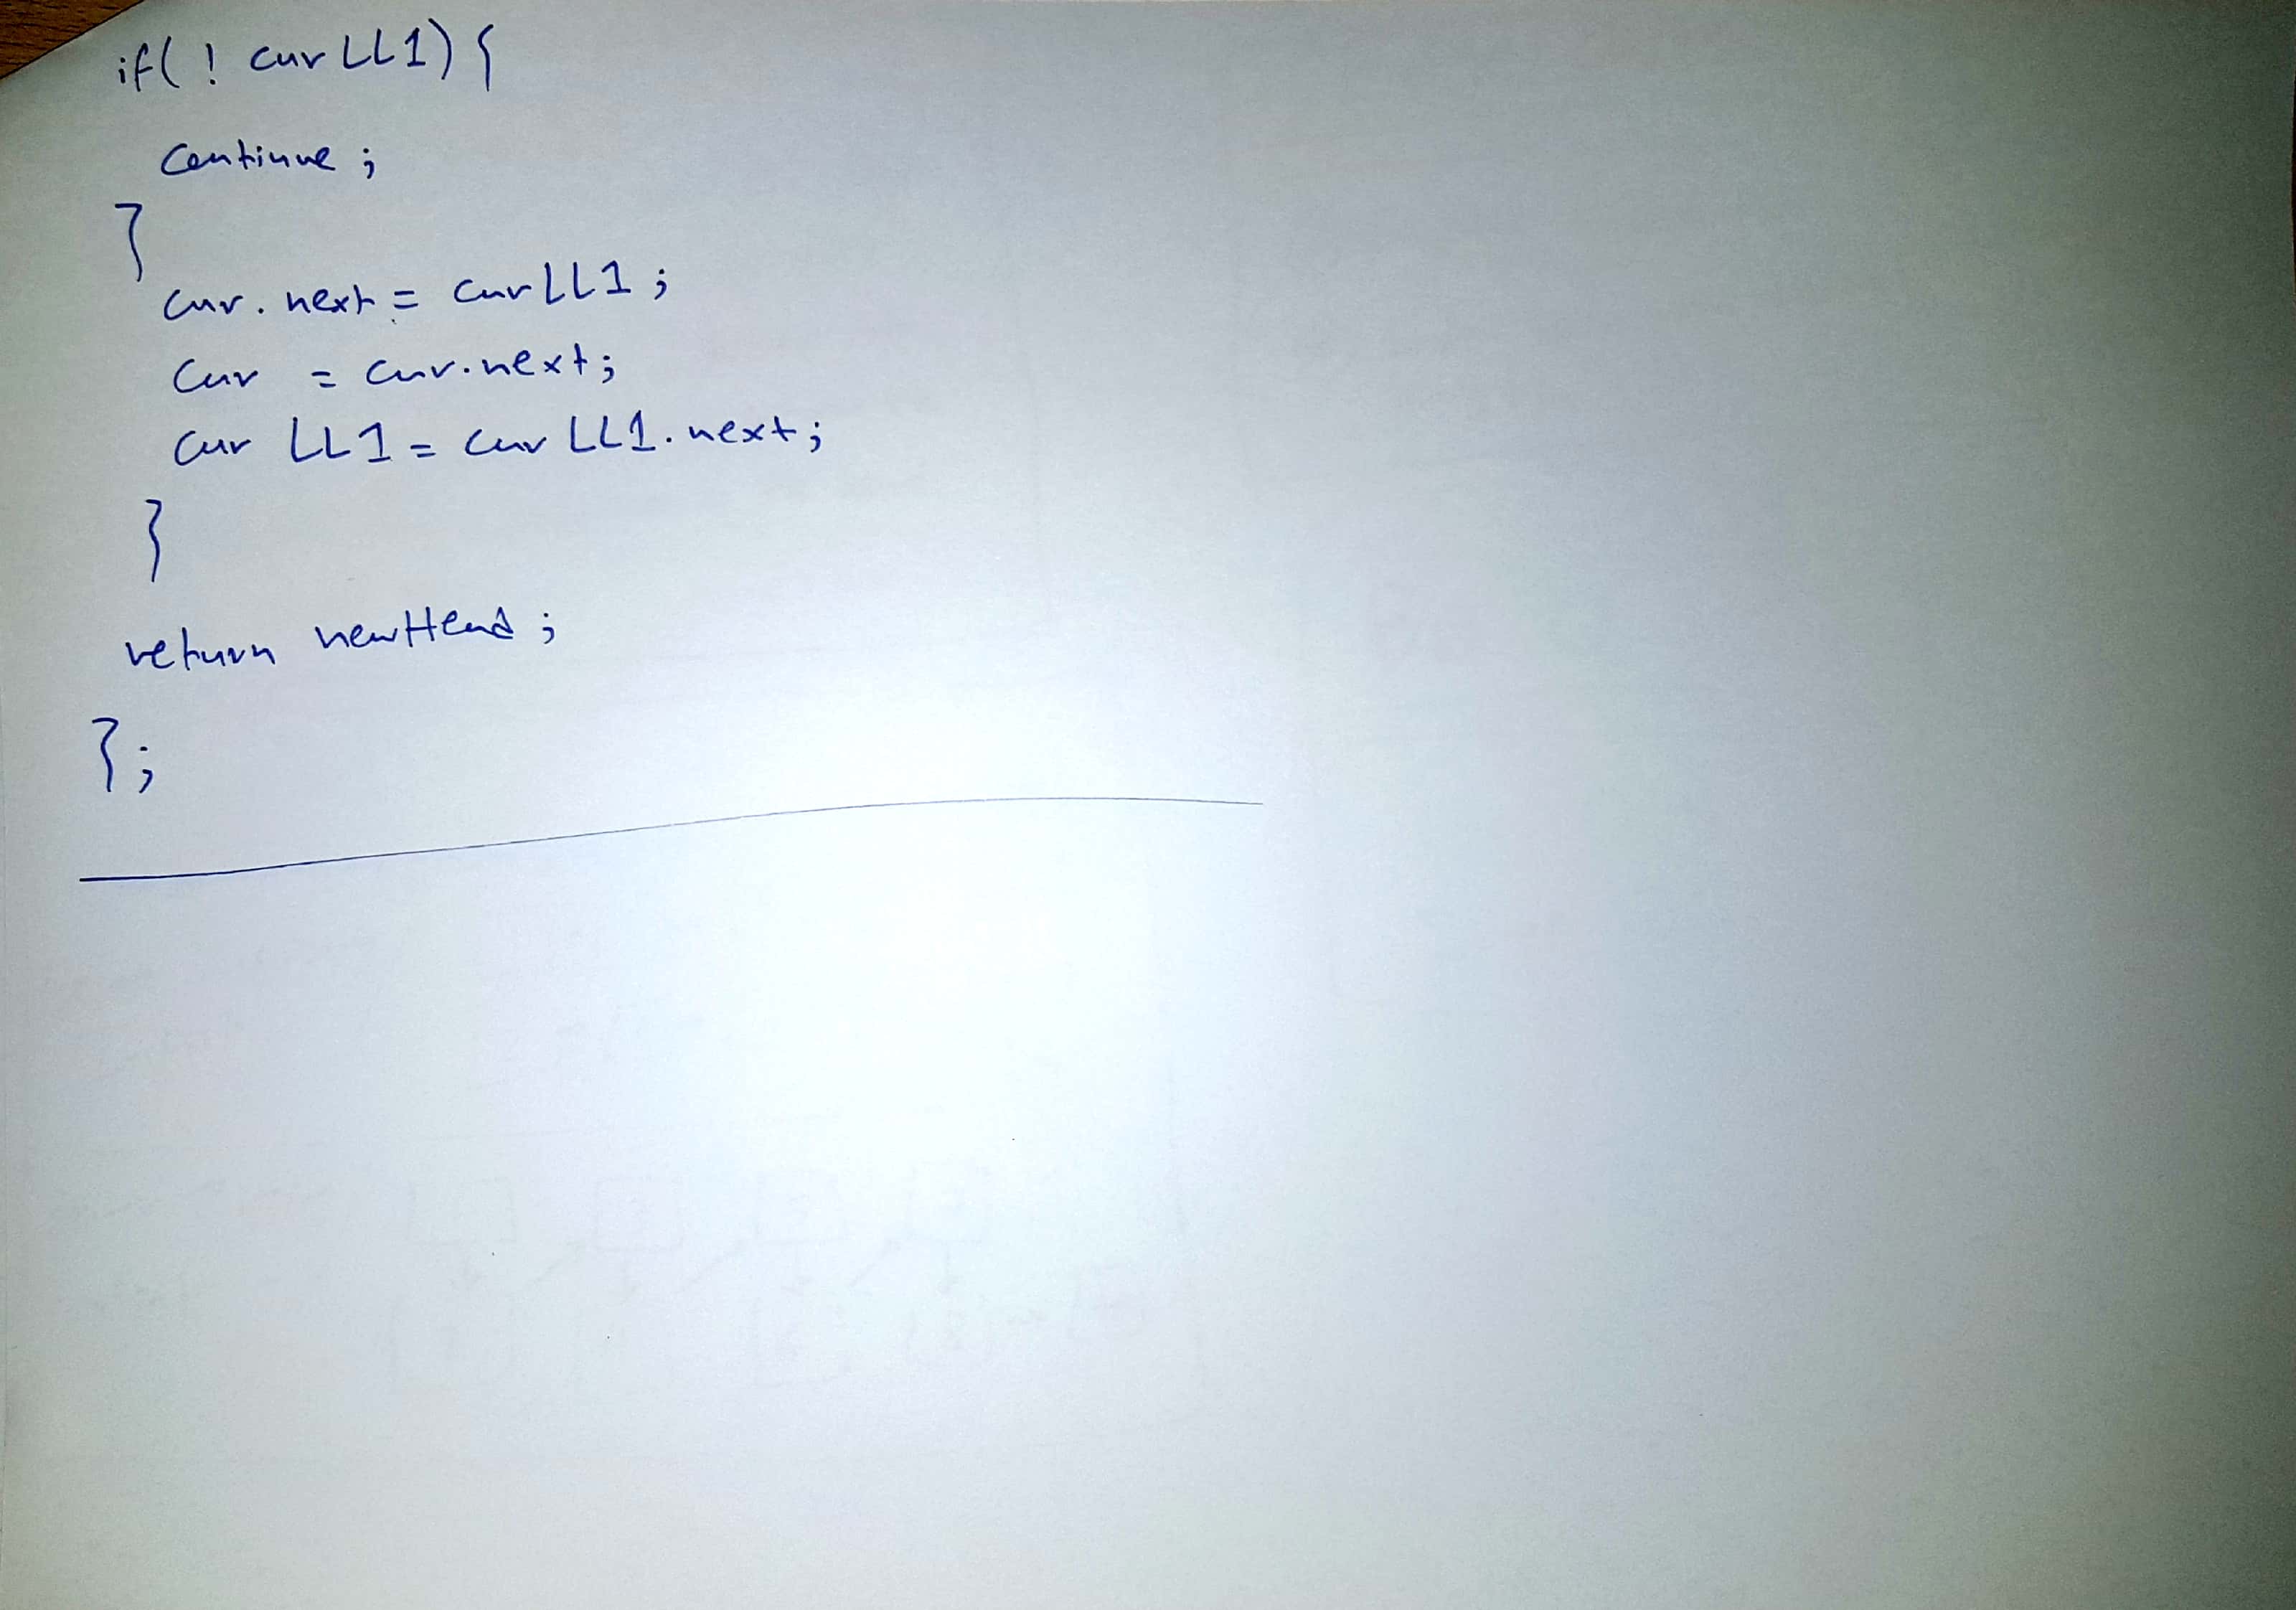 if(! curLL1){
continue;
}
cur.next = curLL1;
cur = cur.next;
cur LL1 = cur LL1.next;
}
return newHead;
};